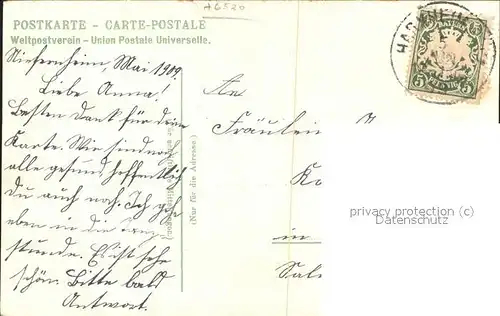 A6520
POSTKARTE – CARTE-POSTALE
Weltpostverein – Union Postale Universelle.
Niefernheim, Mai 1909.
Liebe Anna!
Besten Dank für deine
Karte. Wir sind noch
alle gesund hoffentlich
du auch noch. Ich gehe
eben in die
stunde. Es ist sehr
schön. Bitte bald
Antwort.
(Nur für die Adresse.)
An
Fräulein
in
BAYERN
5 PFENNIG 5
privacy protection (c)
Datenschutz